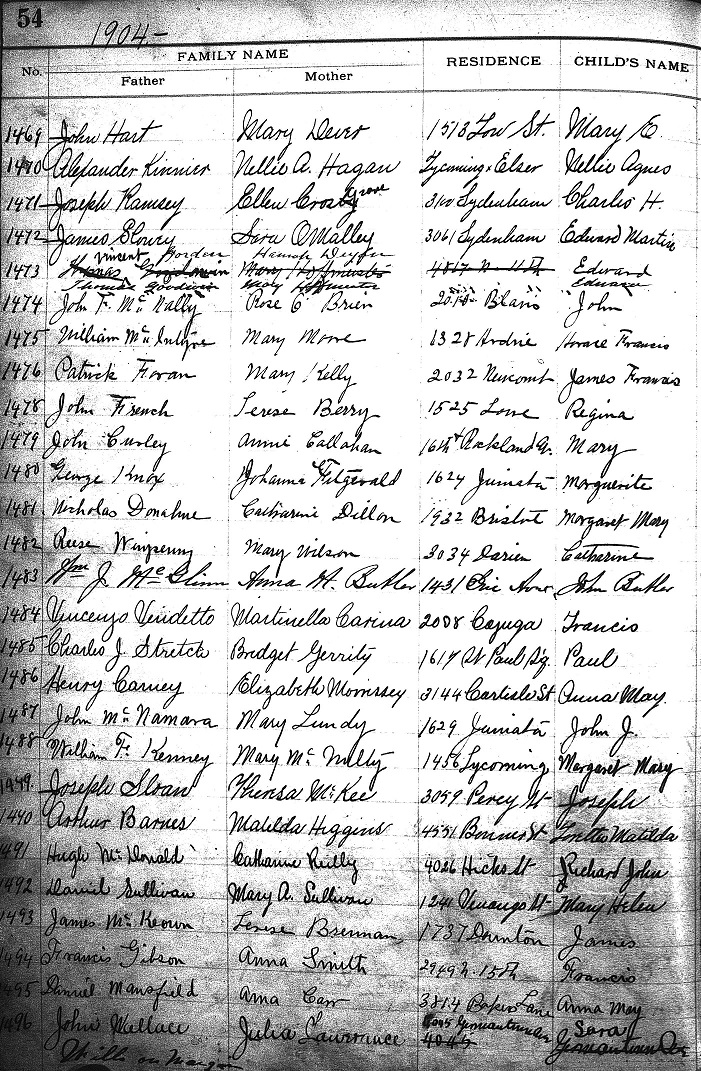 54
1904.-
FAMILY NAME
No. Father Mother RESIDENCE CHILD'S NAME
1469 John Hart Mary Dever 1513 Low St. Mary E.
1470 Alexander Kinnier Nellie A. Hagan Lycoming & Elser Nellie Agnes
1471 Joseph Ramsey Ellen Crosgrove 3100 Sydenham Charles H.
1472 James Slowry Sara O'Malley 3061 Sydenham Edward Martin
Vincent Borden Hannah
1473 Thomas Mary Edward
Thomas Goodwin Mary Edward
1474 John F. McNally Rose O'Brien John
1475 William McIntyre Mary Moore 1328 Horace Francis
1476 Patrick Foran Mary Kelly 2032 Newcomb James Francis
1478 John French Terese Berry 1525 Lowe Regina
1479 John Curley Annie Callahan 16th & Rockland Mary
1480 George Knox Johanna Fitzgerald 1624 Juniata Marguerite
1481 Nicholas Donahue Catharine Dillon 1932 Bristol Margaret Mary
1482 Reese Winpenny Mary Wilson 3034 Darien Catharine
1483 Wm J. McGlinn Anna H. Butler 1431 Erie Ave. John Butler
1484 Vincenzo Vendetto Martinella Carina 2008 Cayuga Francis
1485 Charles J. Stretch Bridget Gerrity 1617 St Paul Sq. Paul
1486 Henry Carney Elizabeth Morrissey 3144 Carlisle St Anna May.
1487 John McNamara Mary Lundy 1629 Juniata John J.
1488 William F. Kenney Mary McNulty 1456 Lycoming Margaret Mary
1489 Joseph Sloan Theresa McKee 3059 Percy St Joseph
1490 Arthur Barnes Matilda Higgins 4551 Bonner St Loretta Matilda
1491 Hugh McDonald Catharine Reilly 4026 Hicks St Richard John
1492 Daniel Sullivan Mary A. Sullivan 1241 Venango St Mary Helen
1493 James McKeown Terese Brennan 1737 Dounton James
1494 Francis Gibson Anna Smith 2949 N. 15th Francis
1495 Daniel Mansfield Anna Carr 3814 Bakers Lane Anna May
1496 John Wallace Julia Lawrance Germantown Ave Sara
4044 Germantown Ave